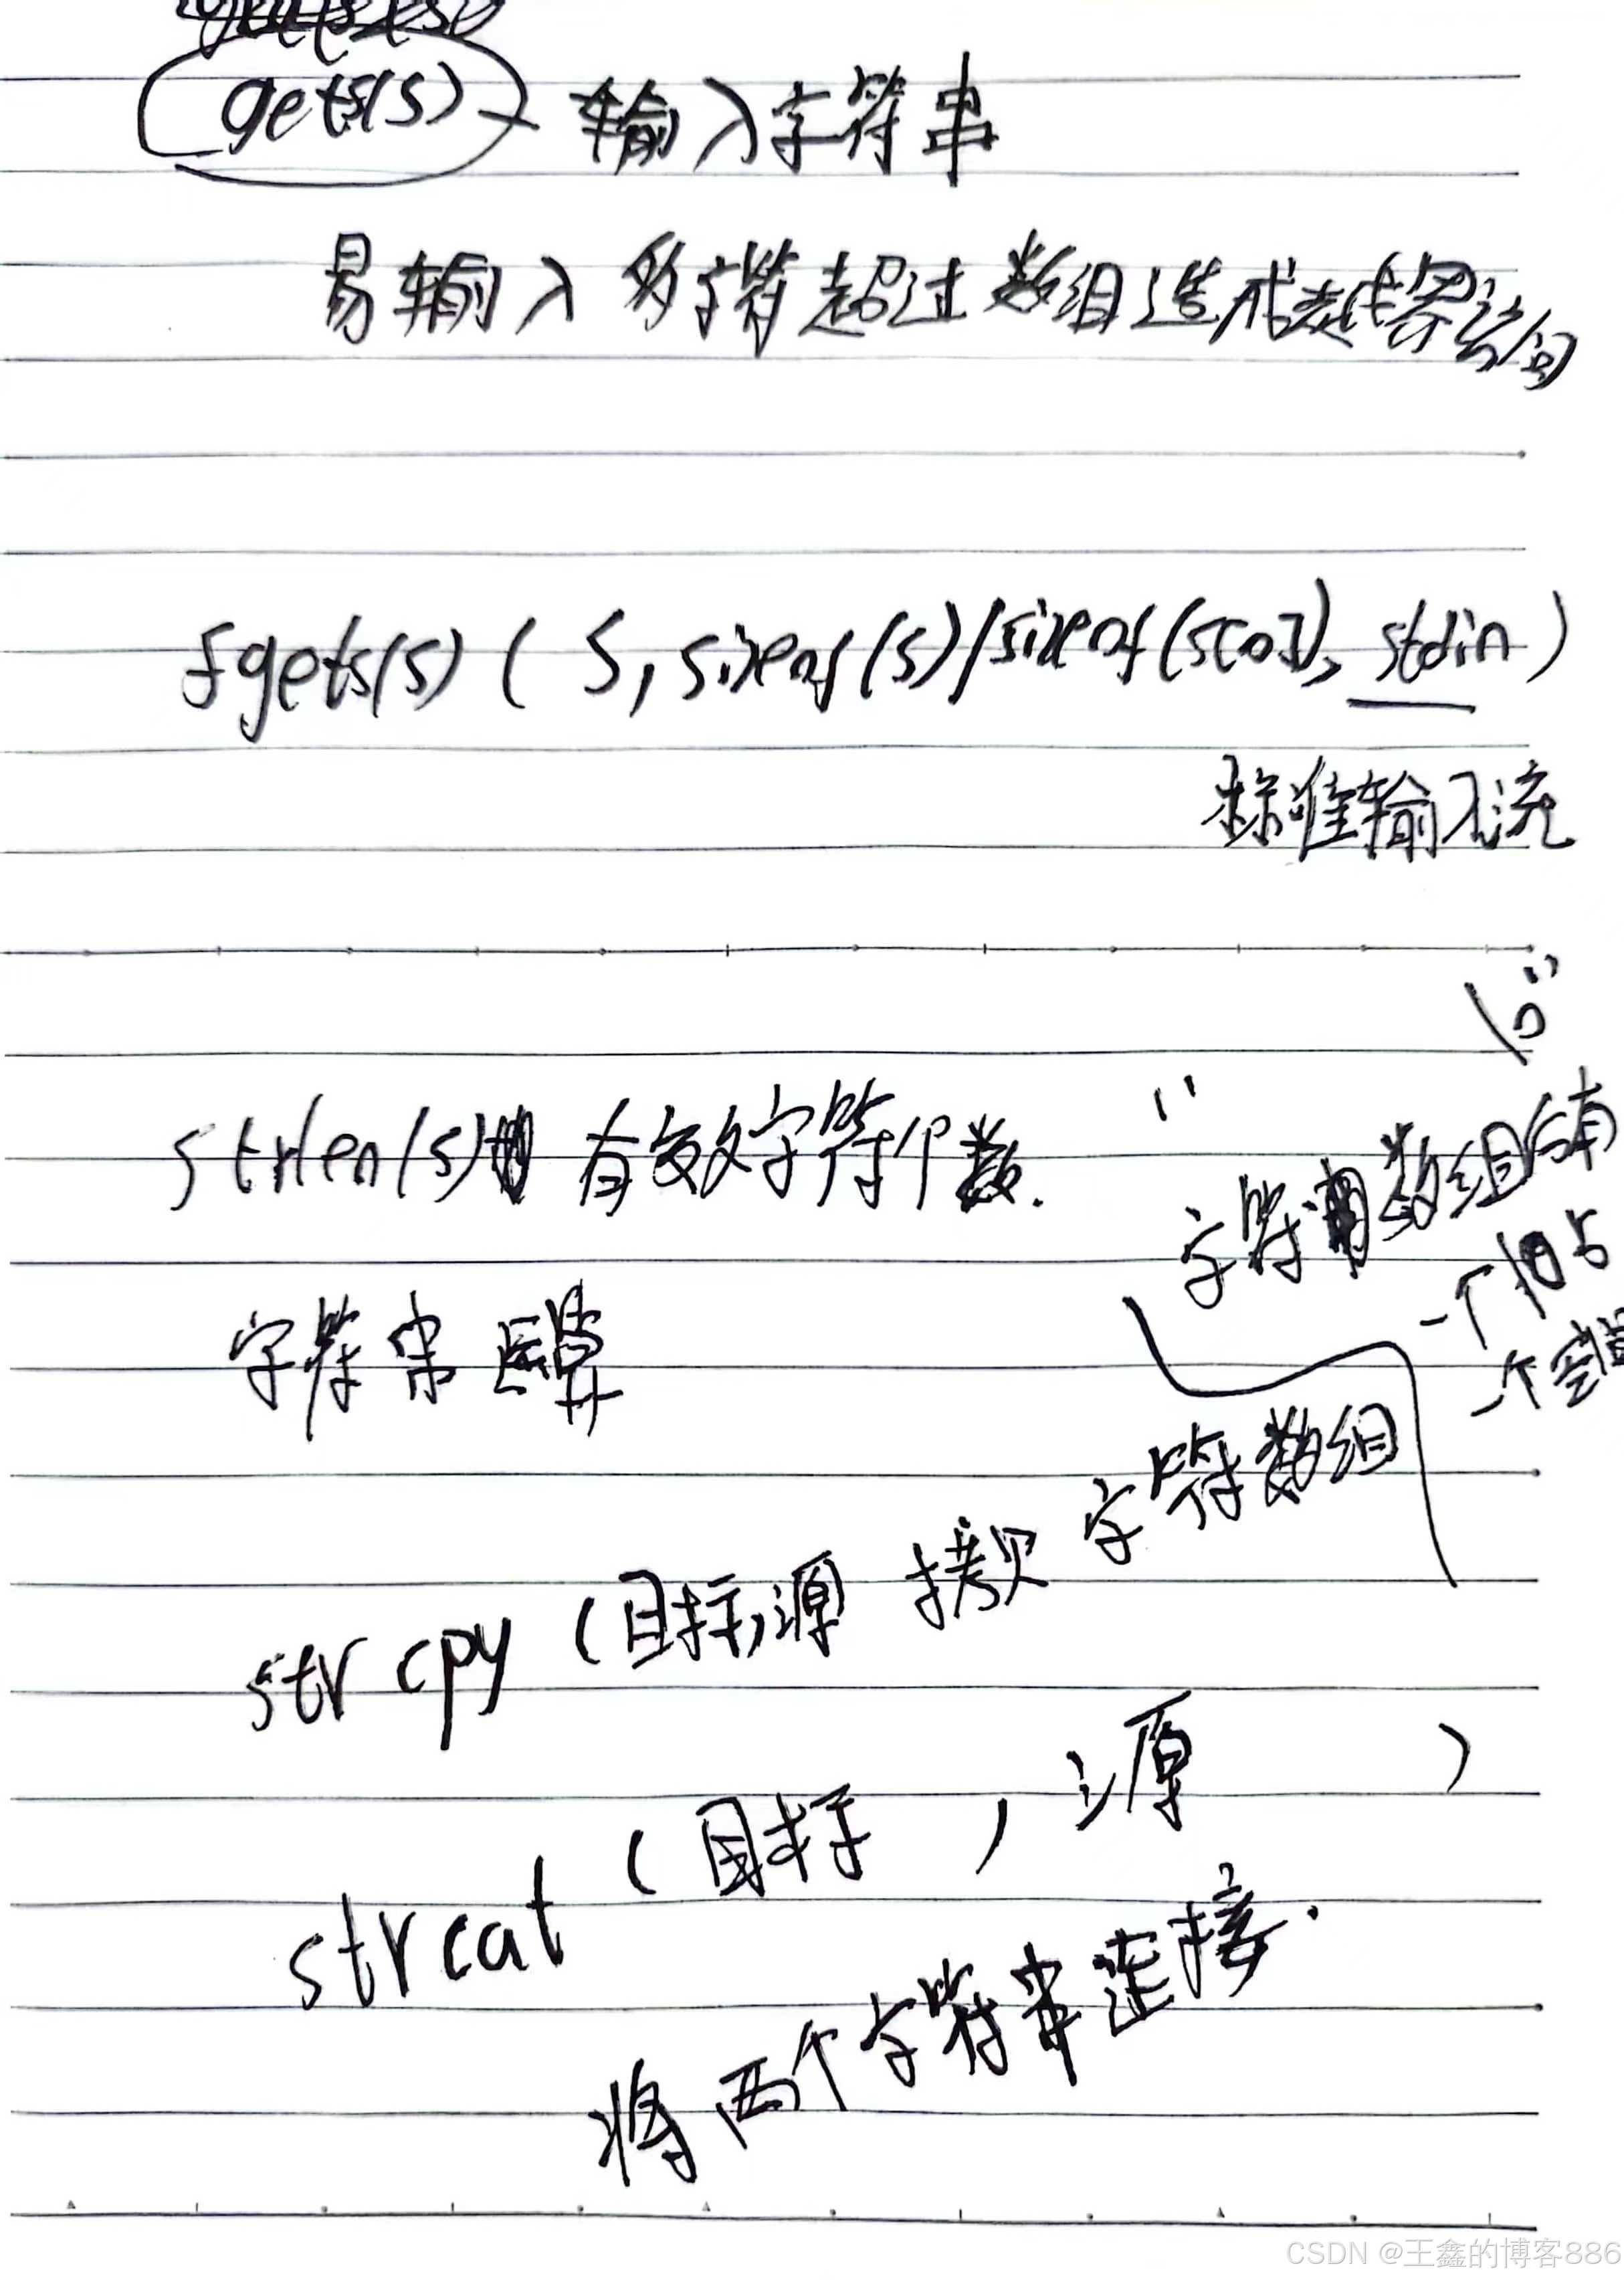 gets(s) 输入字符串
易输入多字符超过数组造成越界访问
fgets(s) ( S, sizeof(s)/sizeof(s[0]), stdin )
标准输入流
" \0"
strlen(s) 有效字符个数.
字符数组后有
一个\0占
一个空间
字符串
strcpy (目标,源 拷贝 字符数组
strcat (目标 , 源 )
将两个字符串连接.
CSDN @王鑫的博客886